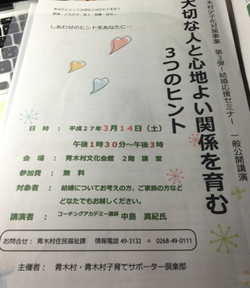 青木村少子化対策事業 第3弾!結婚応援セミナー 一般公開講演
大切な人と心地よい関係を育む
3つのヒント
しあわせのヒントをあなたに…
日 時: 平成27年3月14日(土)
午後1時30分~午後3時
会 場: 青木村文化会館 2階 講堂
参加費: 無 料
対象者: 結婚についてお考えの方、ご家族の方など
どなたでもお越しください。
講演者: コーチングアカデミー講師 中島 真紀氏
お問合せ: 青木村住民福祉課 情報電話 49-3132 ¤ 0268-49-0111
主催者: 青木村・青木村子育てサポーター倶楽部